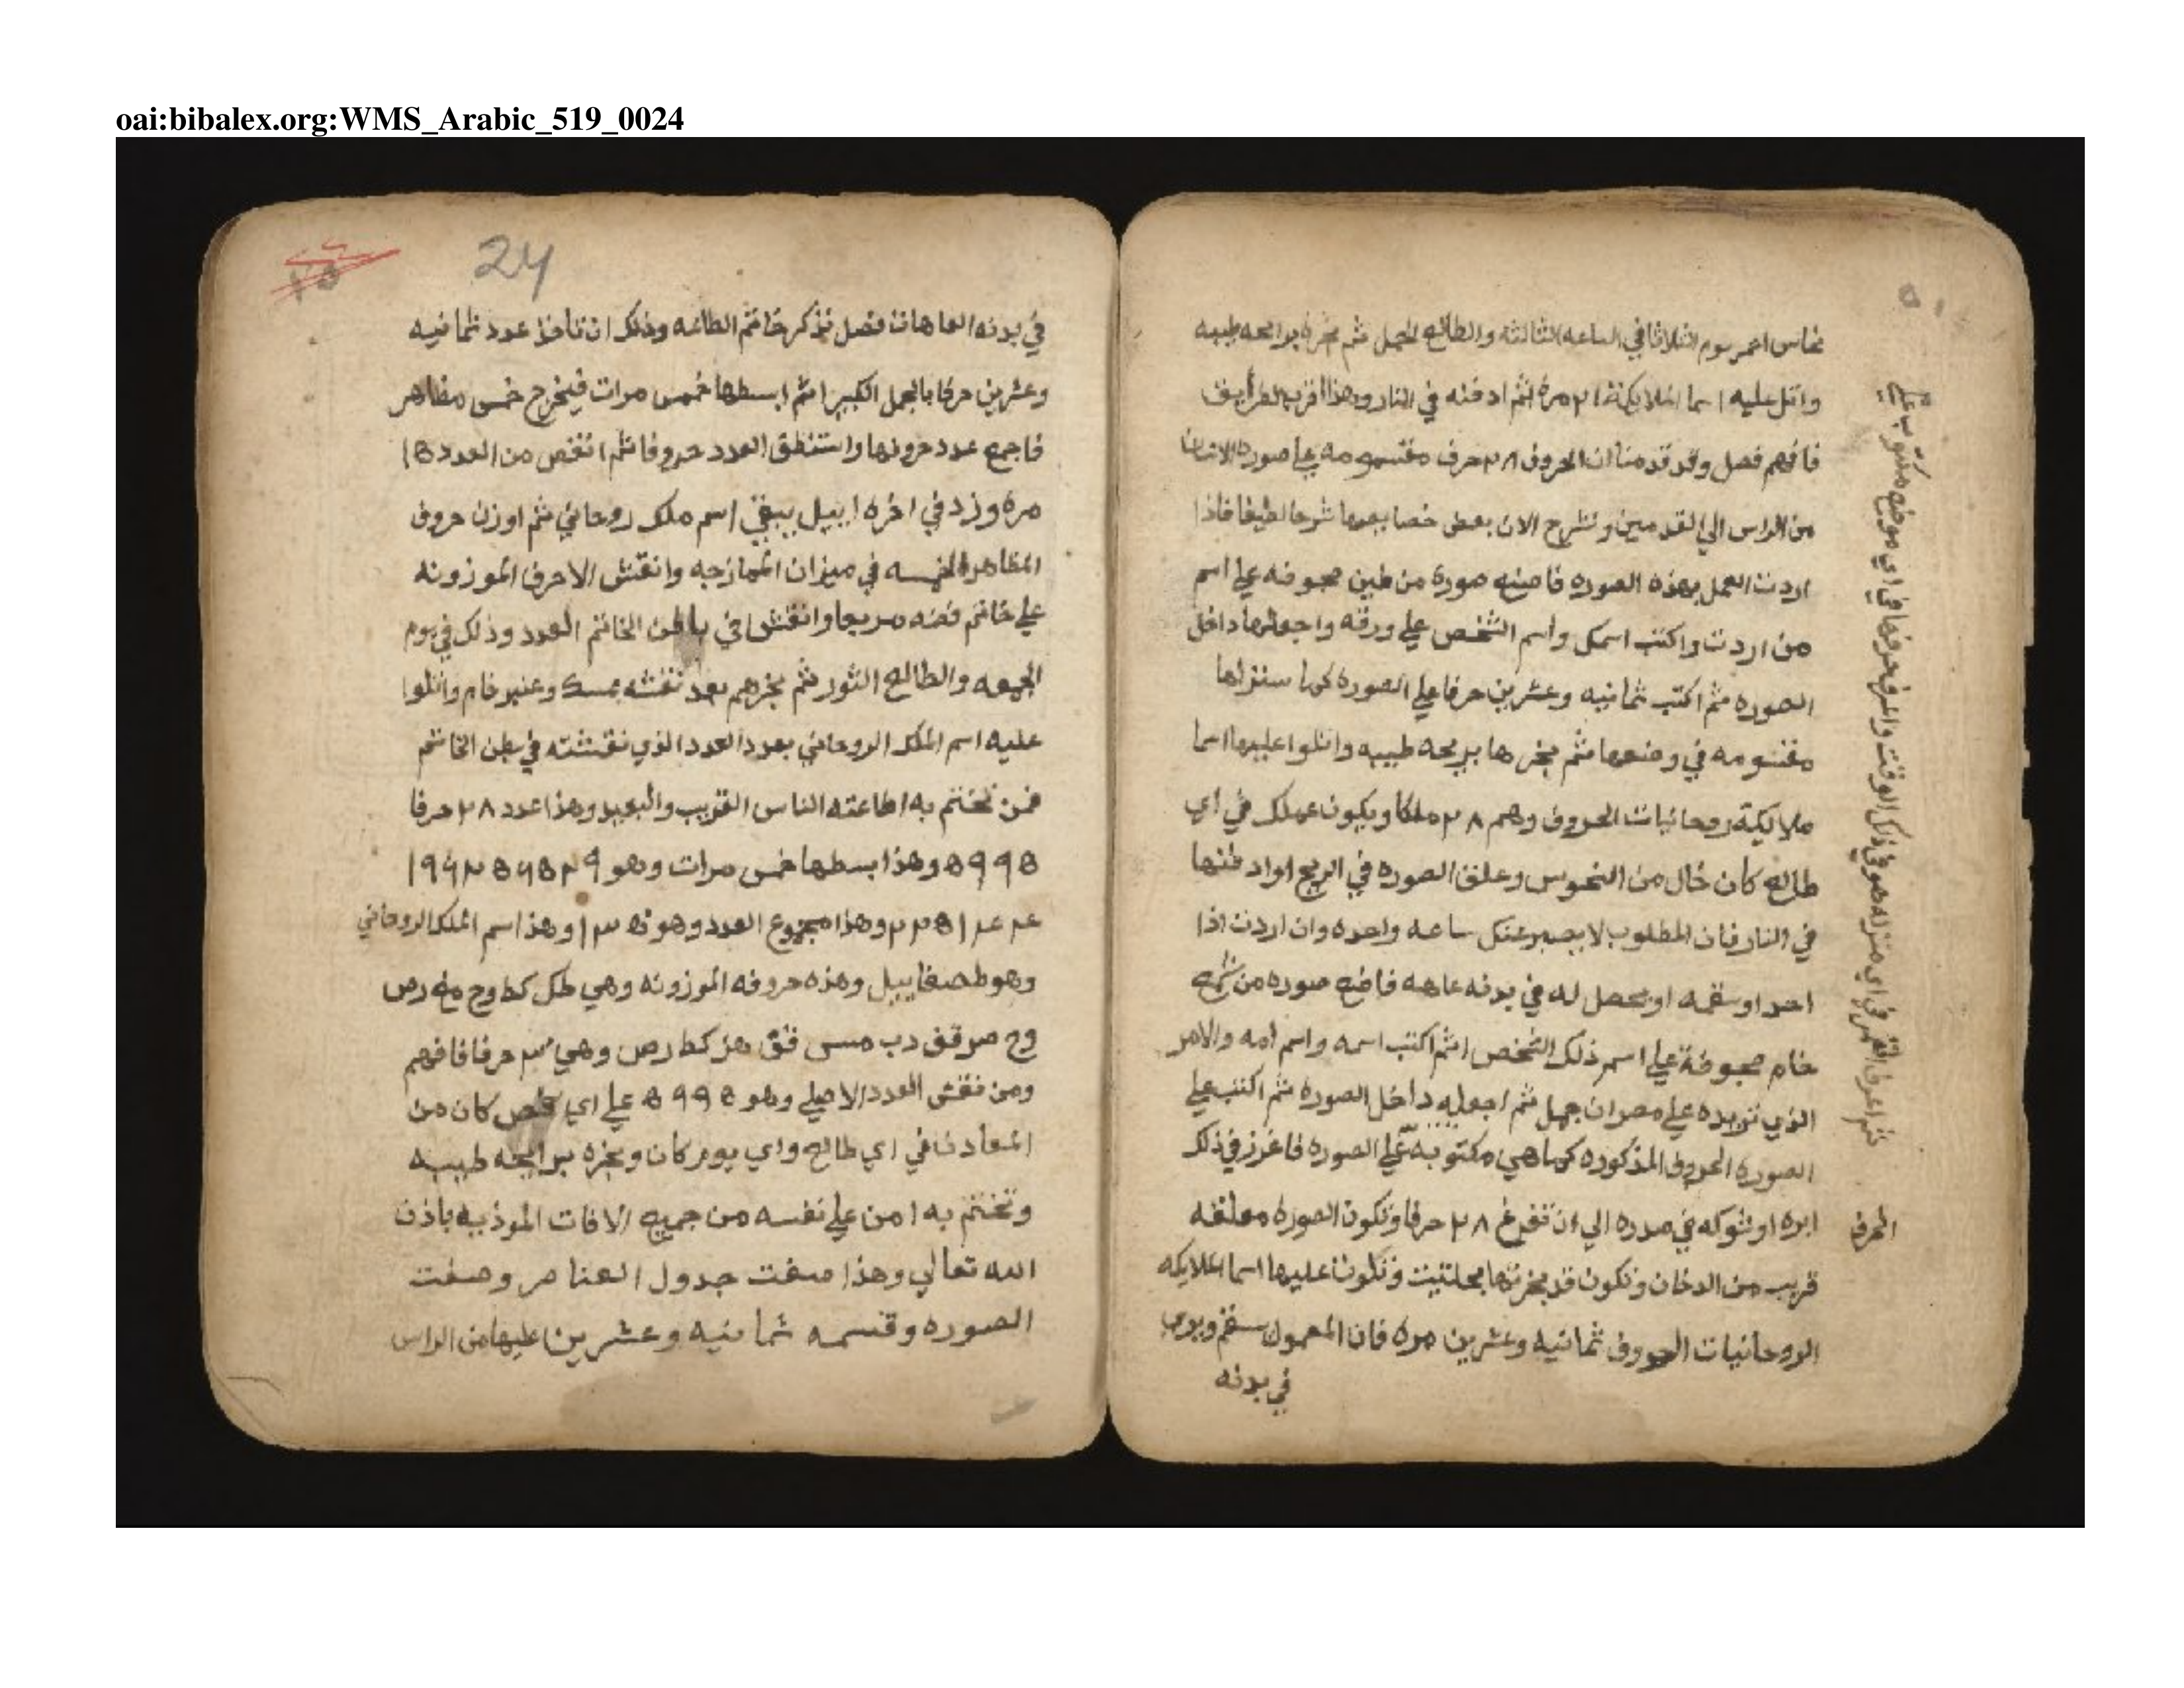 oai:bibalex.org:WMS_Arabic_519_0024
نحاس احمر يوم الثلاثا في الساعه الثالثه والطالع الحمل ثم بخره برايحه طيبه
واتل عليه اسما الملايكة ٢١ مرة ثم ادفنه في النار وهذا اقرب الطرايق
فافهم فصل وقد قدمنا ان الحروف ٢٨ حرف مقسومه علي صورة الانسان
من الراس الي القدمين ونشرح الان بعض خصايصها شرحا لطيفا فاذا
اردت العمل بهذه الصوره فاصنع صورة من طين مجوفه علي اسم
من اردت واكتب اسمك واسم الشخص علي ورقه واجعلها داخل
الصوره ثم اكتب ثمانيه وعشرين حرفا علي الصوره كما سنزلها
مقسومه في وضعها ثم بخرها بريحه طيبه واتلوا عليها اسما
ملايكة روحانيات الحروف وهم ٢٨ ملكا ويكون عملك في اي
طالع كان خال من النحوس وعلق الصوره في الريح او ادفنها
في النار فان المطلوب لا يصبر عنك ساعه واحده وان اردت اذا
احد او سقمه او يحصل له في بدنه عاهه فاضع صوره من شمع
خام مجوفة علي اسم ذلك الشخص ثم اكتب اسمه واسم امه والامر
الذي تريده علي مصران جمل ثم اجعله داخل الصوره ثم اكتب علي
الصوره الحروف المذكوره كما هي مكتوبه علي الصوره فاغرز في ذلك
ابره او شوكه في صدره الي ان تفرغ ٢٨ حرفا وتكون الصوره معلقه
قريب من الدخان وتكون قد بخرتها بحلتيت وتكون عليها اسما الملايكه
الروحانيات الحروف ثمانيه وعشرين مره فان المعمول سقم ويري
في بدنه
ثم اعرف القمر في اي منزله هو في ذلك الوقت والحرف حرفها في اي موضع مكتوب علي
الحرف
24
في بدنه العاهات فصل نذكر خاتم الطاعه وذلك ان تاخذ عدد ثمانيه
وعشرين حرفا بالجمل الكبير ثم ابسطها خمس مرات فيخرج خمس مظاهر
فاجمع عدد حرونها واستنطق العدد حروفا ثم انقص من العدد ١٥
مره وزد في اخره اييل يبقي اسم ملك روحاني ثم اوزن حروف
المظاهر الخمسه في ميزان الممازجه وانقش الاحرف الموزونه
علي خاتم فضه مربعا وانقش في باطن الخاتم العدد وذلك في يوم
الجمعه والطالع الثور ثم بخرهم بعد نقشه بمسك وعنبر خام واتلوا
عليه اسم الملك الروحاني بعدد العدد الذي نقشته في بطن الخاتم
فمن تختم به اطاعته الناس القريب والبعيد وهذا عدد ٢٨ حرفا
٥٩٩٥ وهذا بسطها خمس مرات وهو
وهذا مجموع العدد وهو وهذا اسم الملك الروحاني
وهو طصغاييل وهذه حروفه الموزونه وهي طكل كط وح مغ رص
وح صر قف دب مسى فق هز كط رص وهي حرفا فافهم
ومن نقش العدد الاصلي وهو ٥٩٩٥ علي اي فص كان من
المعادن في اي طالع واي يوم كان وبخره برايحه طيبه
وتختم به امن علي نفسه من جميع الافات الموذيه باذن
الله تعالي وهذا صفت جدول العناصر وصفت
الصوره وقسمه ثمانيه وعشرين عليها من الراس